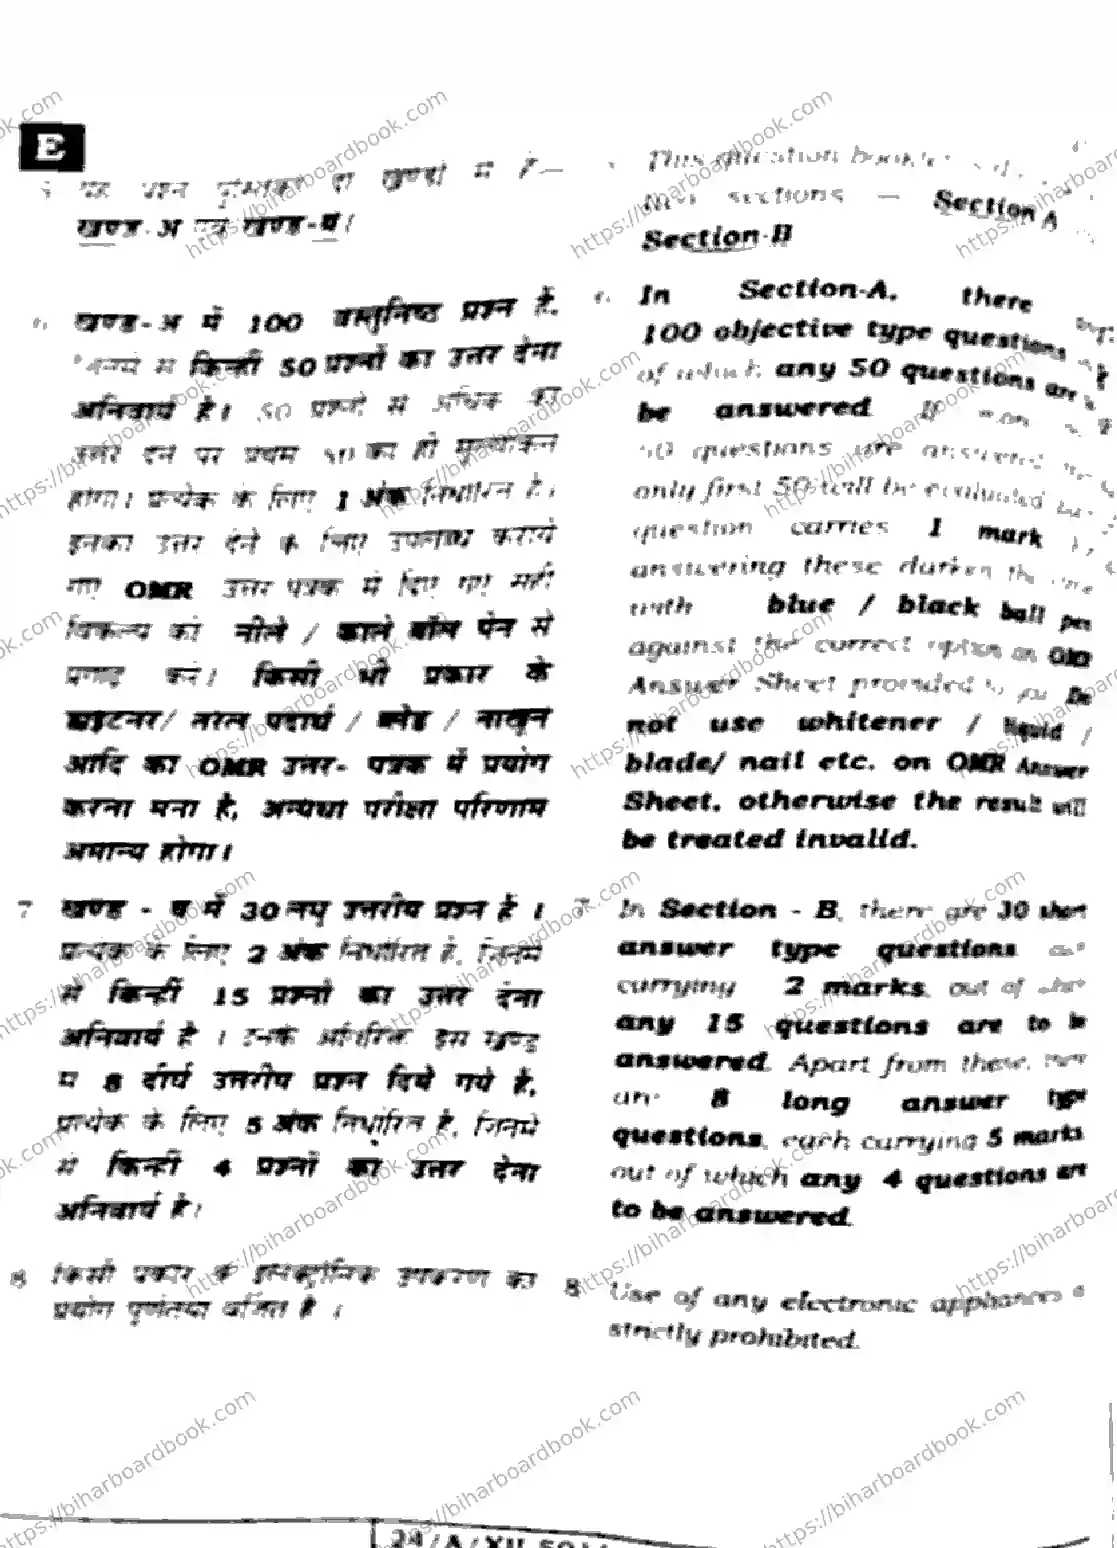 E
5. यह प्रश्न पुस्तिका दो खण्डों में है—
खण्ड-अ एवं खण्ड-ब।
6. खण्ड-अ में 100 वस्तुनिष्ठ प्रश्न हैं,
जिनमें से किन्हीं 50 प्रश्नों का उत्तर देना
अनिवार्य है। 50 प्रश्नों से अधिक का
उत्तर देने पर प्रथम 50 का ही मूल्यांकन
होगा। प्रत्येक के लिए 1 अंक निर्धारित है।
इनका उत्तर देने के लिए उपलब्ध कराये
गए OMR उत्तर पत्रक में दिए गए सही
विकल्प को नीले / काले बॉल पेन से
प्रगाढ़ करें। किसी भी प्रकार के
ह्वाइटनर/ तरल पदार्थ / ब्लेड / नाखून
आदि का OMR उत्तर- पत्रक में प्रयोग
करना मना है, अन्यथा परीक्षा परिणाम
अमान्य होगा।
7 खण्ड - ब में 30 लघु उत्तरीय प्रश्न हैं ।
प्रत्येक के लिए 2 अंक निर्धारित है, जिनमें
से किन्हीं 15 प्रश्नों का उत्तर देना
अनिवार्य है । इनके अतिरिक्त इस खण्ड
में 8 दीर्घ उत्तरीय प्रश्न दिये गये हैं,
प्रत्येक के लिए 5 अंक निर्धारित है, जिनमें
से किन्हीं 4 प्रश्नों का उत्तर देना
अनिवार्य है।
8 किसी प्रकार के इलेक्ट्रॉनिक उपकरण का
प्रयोग पूर्णतया वर्जित है ।
This question booklet
two sections — Section A
Section-B
In Section-A, there
100 objective type questions
of which any 50 questions are
be answered If
50 questions are answered
only first 50 will be evaluated
question carries 1 mark
answering these darken the
with blue / black ball pen
against the correct option on OMR
Answer Sheet provided to you Do
not use whitener / liquid /
blade/ nail etc. on OMR Answer
Sheet, otherwise the result will
be treated invalid.
7 In Section - B, there are 30 short
answer type questions
carrying 2 marks, out of
any 15 questions are to be
answered. Apart from these,
are 8 long answer type
questions, each carrying 5 marks
out of which any 4 questions are
to be answered.
8 Use of any electronic appliances
strictly prohibited.
https://biharboardbook.com